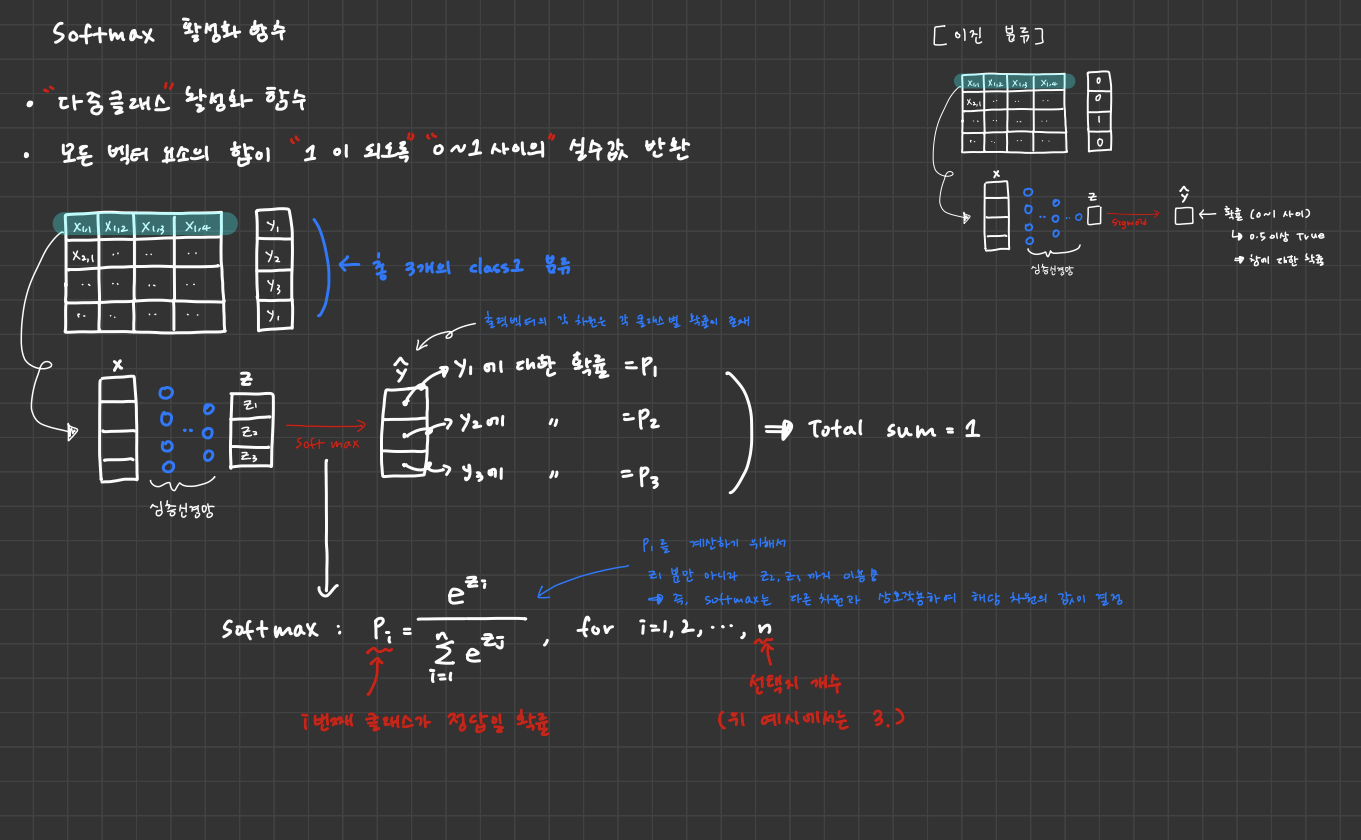 Softmax 활성화 함수
• "다중클래스" 활성화 함수
• 모든 벡터 요소의 합이 "1이 되도록" "0~1 사이의" 실수값 반환
x1,1 x1,2 x1,3 x1,4
x2,1 ‥ ‥ ‥
‥ ‥ ‥ ‥
‥ ‥ ‥ ‥
y1
y2
y3
y1
← 총 3개의 class로 분류
출력벡터의 각 차원은 각 클래스별 확률이 존재
x
‥
심층신경망
z
z1
z2
z3
softmax
ŷ
y1에 대한 확률 = P1
y2에 〃 = P2
y3에 〃 = P3
⇒ Total sum = 1
P1를 계산하기 위해서
z1 뿐만 아니라 z2, z3 까지 이용함
→ 즉, softmax는 다른 차원과 상호작용하여 해당 차원의 값이 결정
softmax : Pi = e^zi / Σ(i=1, n) e^zj , for i=1, 2, ⋯, n
i번째 클래스가 정답일 확률
선택지 개수
(위 예시에서는 3.)
[이진 분류]
x1,1 x1,2 x1,3 x1,4
x2,1 ‥ ‥ ‥
‥ ‥ ‥ ‥
‥ ‥ ‥ ‥
0
0
1
0
x
‥
심층신경망
z
sigmoid
ŷ
← 확률 (0~1 사이)
↳ 0.5 이상 True
⇒ 참에 대한 확률